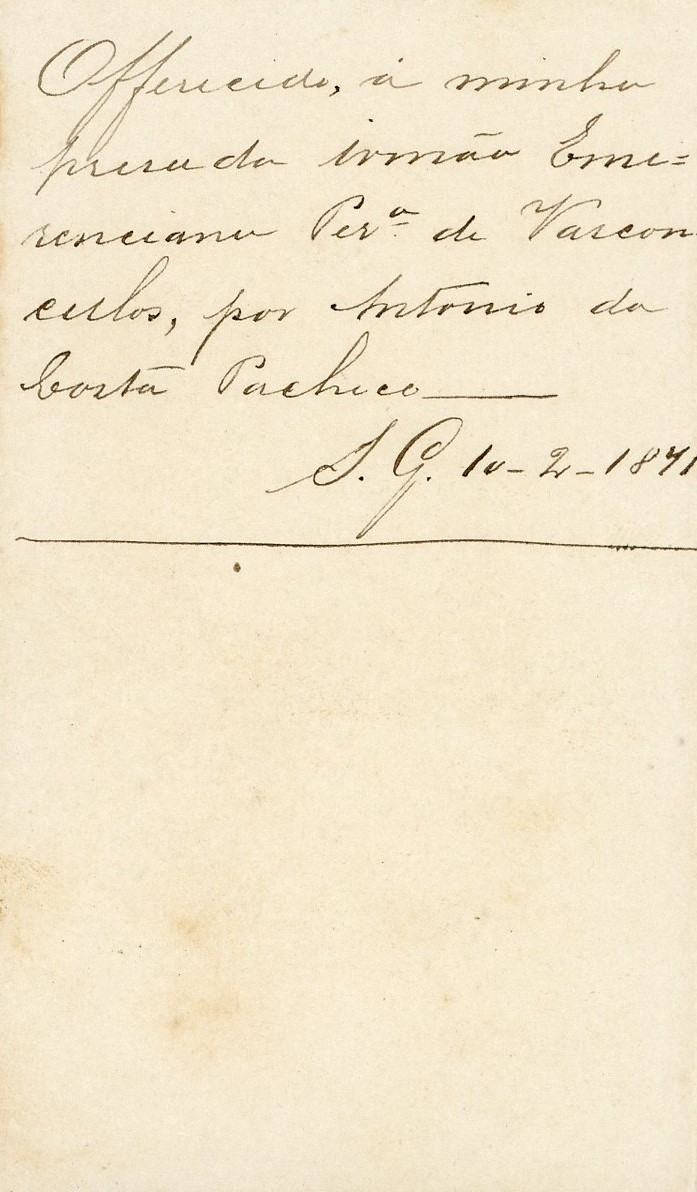 Offerecido, á minha
presada irmão Eme=
renciana Per.ª de Vascon
cellos, por Antonio da
Costa Pacheco
S. G. 10-2-1871